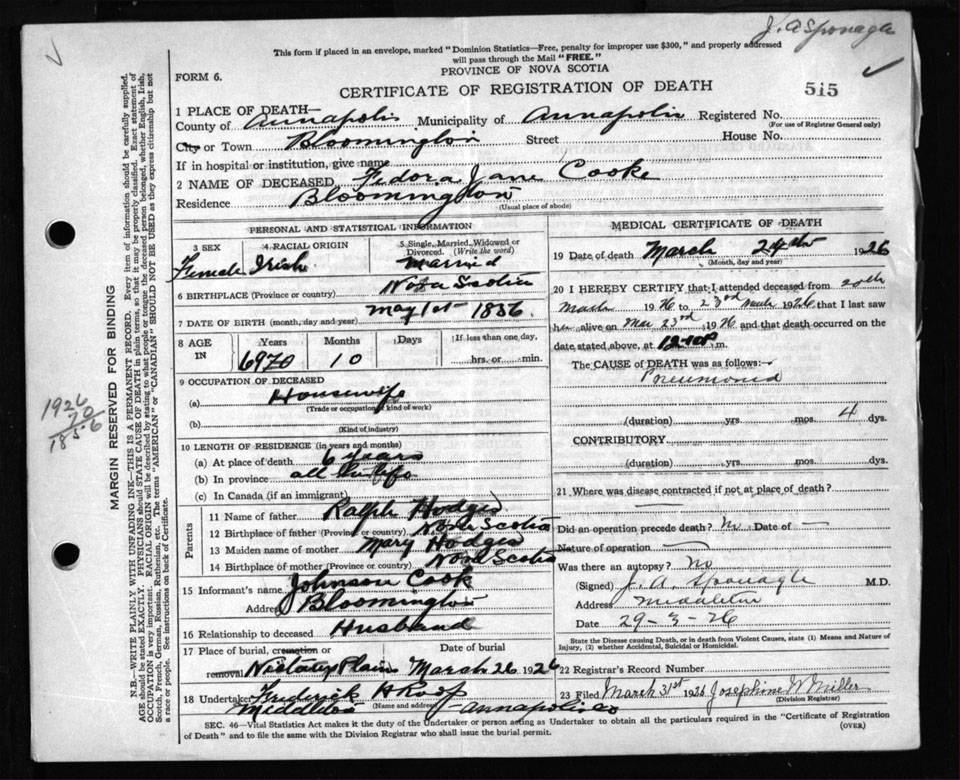 J. A Sponagle
This form if placed in an envelope, marked "Dominion Statistics—Free, penalty for improper use $300," and properly addressed
will pass through the Mail "FREE."
PROVINCE OF NOVA SCOTIA
FORM 6.
CERTIFICATE OF REGISTRATION OF DEATH
515
1 PLACE OF DEATH—
County of Annapolis Municipality of Annapolis Registered No.
(For use of Registrar General only)
City or Town Bloomington Street House No.
If in hospital or institution, give name
2 NAME OF DECEASED Fedora Jane Cooke
Residence Bloomington
(Usual place of abode)
PERSONAL AND STATISTICAL INFORMATION
3 SEX 4 RACIAL ORIGIN 5 Single, Married, Widowed or
Divorced. (Write the word)
Female Irish Married
6 BIRTHPLACE (Province or country) Nova Scotia
7 DATE OF BIRTH (month, day and year) May 1st 1856
8 AGE IN Years Months Days If less than one day,
6970 10 hrs. or min.
9 OCCUPATION OF DECEASED
(a) Housewife
(Trade or occupation, kind of work)
(b)
(Kind of industry)
10 LENGTH OF RESIDENCE (in years and months)
(a) At place of death 6 years
(b) In province all her life
(c) In Canada (if an immigrant)
Parents
11 Name of father Ralph Hodges
12 Birthplace of father (Province or country) Nova Scotia
13 Maiden name of mother Mary Hodges
14 Birthplace of mother (Province or country) Nova Scotia
15 Informant's name Johnson Cook
Address Bloomington
16 Relationship to deceased Husband
17 Place of burial, cremation or Date of burial
removal Nictaux Plain March 26 1926
18 Undertaker Frederick A Roop
Middleton (Name and address) Annapolis Co
MEDICAL CERTIFICATE OF DEATH
19 Date of death March 24th 1926
(Month, day and year)
20 I HEREBY CERTIFY that I attended deceased from 20th
March 1926 to 23rd March 1926 that I last saw
her alive on Mar 23rd, 1926 and that death occurred on
date stated above, at m.
The CAUSE of DEATH was as follows:—
Pneumonia
(duration) yrs. mos. 4 dys.
CONTRIBUTORY
(duration) yrs. mos. dys.
21 Where was disease contracted if not at place of death?
Did an operation precede death? No Date of —
Nature of operation —
Was there an autopsy? No
(Signed) J. A. Sponagle M.D.
Address Middleton
Date 29-3-26
State the Disease causing Death, or in death from Violent Causes, state (1) Means and Nature of
Injury, (2) whether Accidental, Suicidal or Homicidal.
22 Registrar's Record Number
23 Filed March 31st 1926 Josephine W Miller
(Division Registrar)
SEC. 46—Vital Statistics Act makes it the duty of the Undertaker or person acting as Undertaker to obtain all the particulars required in the "Certificate of Registration
of Death" and to file the same with the Division Registrar who shall issue the burial permit.
(OVER)
1926
70
1856
MARGIN RESERVED FOR BINDING
N.B.—WRITE PLAINLY, WITH UNFADING INK—THIS IS A PERMANENT RECORD. Every item of information should be carefully supplied.
AGE should be stated EXACTLY. PHYSICIANS should STATE CAUSE OF DEATH in plain terms, so that it may be properly classified. Exact statement of
OCCUPATION is very important. RACIAL ORIGIN will be described by stating to what people or tongue the deceased person belonged, whether English, Irish,
Scotch, French, German, Russian, Ruthenian, etc. The terms "AMERICAN" or "CANADIAN" SHOULD NOT BE USED as they express citizenship but not
a race or people. See instructions on back of Certificate.